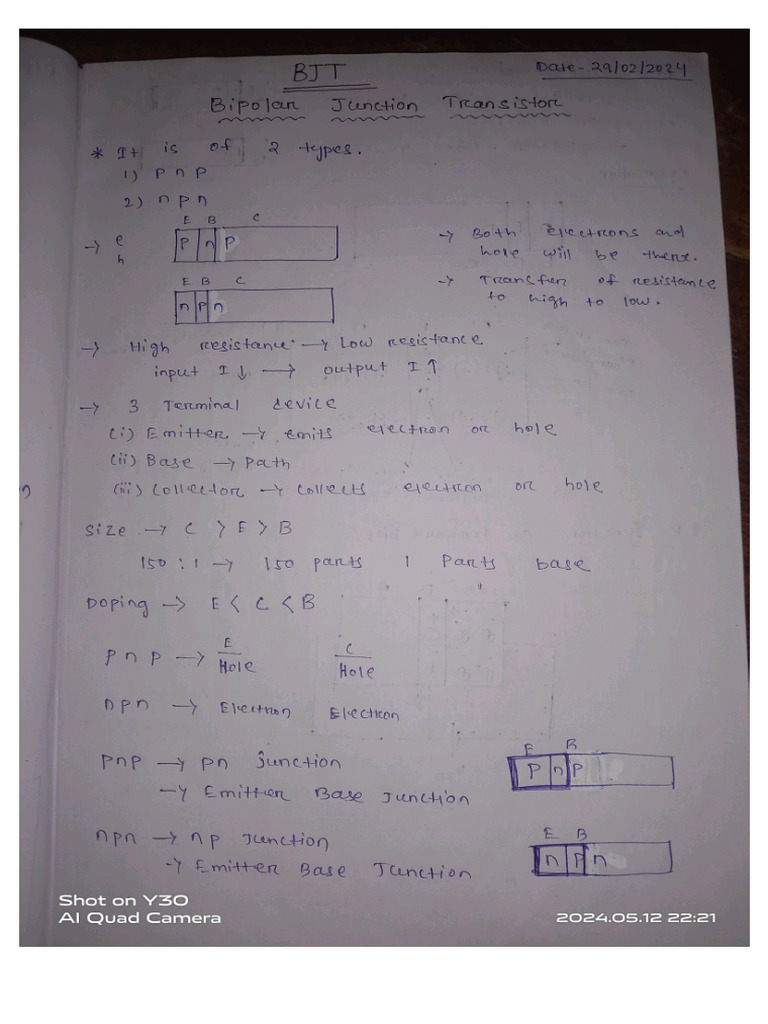 BJT
Date - 29/02/2024
Bipolar Junction Transistor
* It is of 2 types.
1) p n p
2) n p n
E B C
→ e p n p
h
→ Both electrons and
hole will be there.
E B C
n p n
→ Transfer of resistance
to high to low.
→ High resistance → Low resistance
input I ↓ → output I ↑
→ 3 Terminal device
(i) Emitter → emits electron or hole
(ii) Base → Path
(iii) Collector → Collects electron or hole
Size → C > E > B
150 : 1 → 150 parts 1 Parts base
Doping → E < C < B
E C
p n p → Hole Hole
n p n → Electron Electron
pnp → pn Junction
→ Emitter Base Junction
E B
p n p
npn → np Junction
→ Emitter Base Junction
E B
n p n
Shot on Y30
AI Quad Camera
2024.05.12 22:21